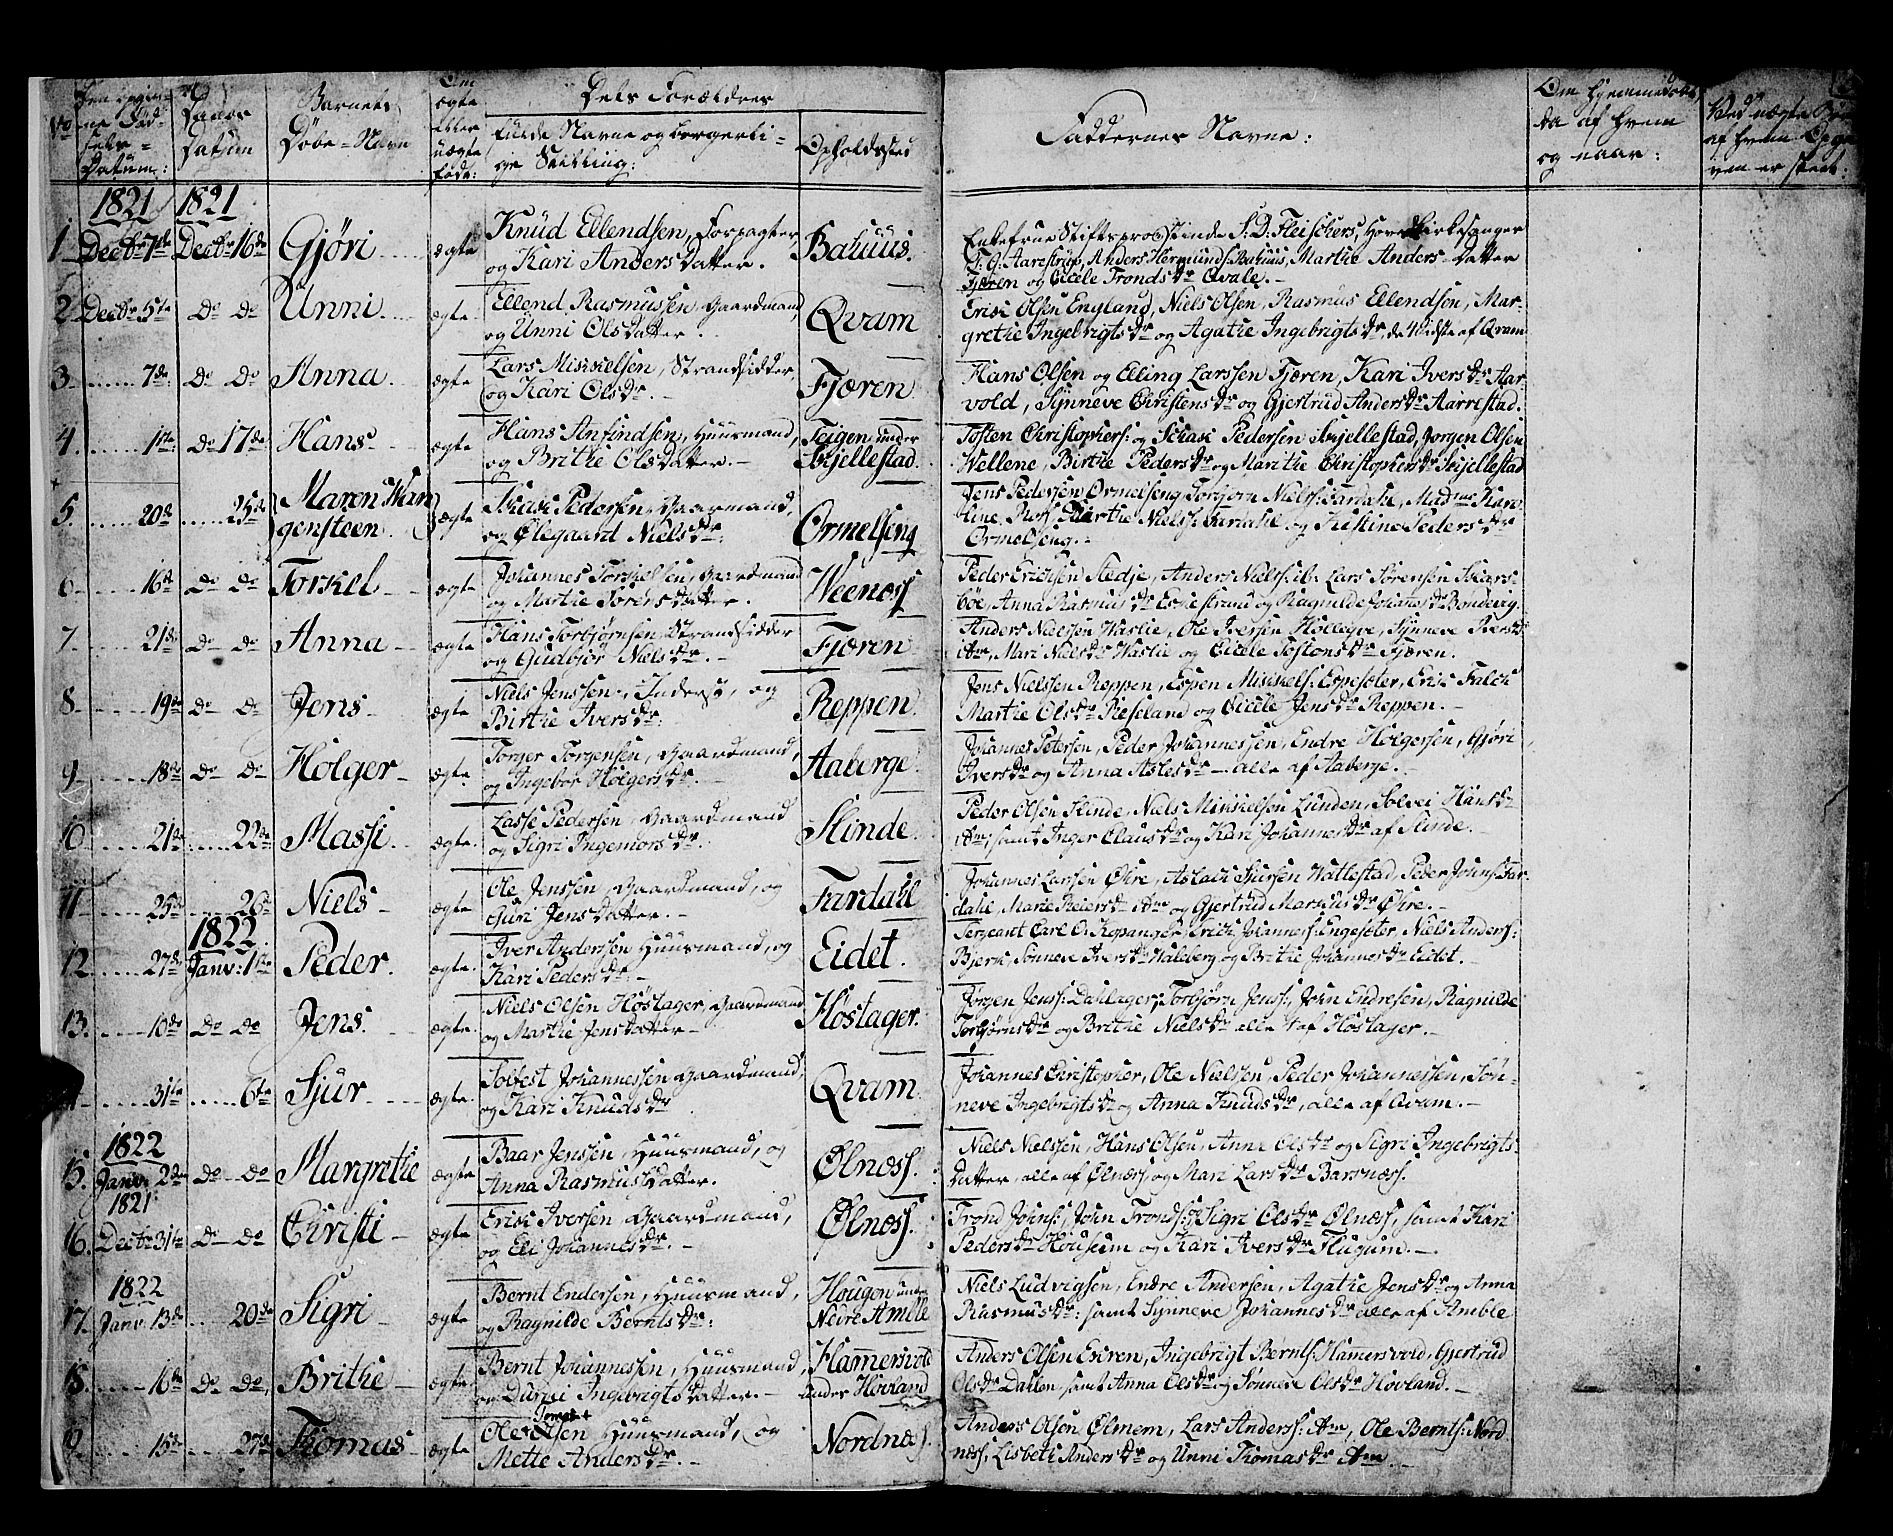 No
Datum:
Daabs
Datum
Barnets
Døbe-Navn
Om
ægte
eller
uægte
født:
Dets Forældres
fulde Navne og borgerli-
ge Stilling:
Opholdssted
Faddernes Navne:
Om hjemmedøbt
da af hvem
og naar:
Ved uægte
af hvem
ven er skeet:
1821 1821
1 Decbr 7de Decbr 16de Gjøri ægte Knud Ellendsen, Forpagter,
og Kari Anders Datter. Bahuus.
Enkefrue Stiftsprovstinde S. D. Fleischers, Kirkesanger
T. G. Aarestrup, Anders Hermunds: Bahuus, Marthe Anders-Datter
Fjæren og Cicele Tronds Dr Qvale.
2 Decbr 5te Do Do Unni ægte Ellend Rasmussen, Gaardmand,
og Unni Ols Datter. Qvam
Erik Olsen England, Niels Olsen, Rasmus Ellendsen, Mar-
grethe Ingebrigts Dr og Agathe Ingebrigts Dr, de 4 sidste af Qvam
3 7de Do Do Anna ægte Lars Mikkelsen, Strandsidder,
og Kari Ols Dr. Fjæren
Hans Olsen og Elling Larssen Fjæren, Kari Ivers Dr Aar-
vold, Synneve Christens Dr og Gjertrud Anders Dr Aarrestad.
4 1ste Do 17de Hans ægte Hans Anfindsen, Huusmand,
og Brithe Ols Datter. Teigen under
Skjellestad.
Tosten Christophers: og Pedersen Skjellestad, Jørgen Olsen
Wellene, Birthe Peders Dr og Marithe Christophers Dr Skjellestad
5 20de 25de Maren
gensteen ægte Pedersen, Gaarmand,
og Ølegaard Niels Dr: Ormelseng
Jens Pedersen Ormelseng Torbjørn Niels: Fardahl, Madme Karo-
line Marthe Niels: Fardahl og Kristine Peders Dr
Ormelseng.
6 16de Do Do Torkel ægte Johannes Torkelsen, Gaardmand
og Marthe Sørens Datter. Weenæss
Peder Erichsen Stedje, Anders Niels: ib. Lars Sørensen Skars-
bøe, Anna Rasmus Dr Eskestrand og Ragnilde Johannes Dr Bondevig.
7 21de Do Do Anna ægte Hans Torbjørnsen, Strandsidder
og Gudbjør Niels Dr. Fjæren
Anders Nielssen Waslie, Ole Iversen Hollegve, Synneve Ivers Dr
ibm, Mari Niels Dr Waslie og Cicele Tostens Dr Fjæren.
8 19de Do Do Jens ægte Niels Jenssen, Inderst, og
Birthe Ivers Dr: Reppen
Jens Nielssen Reppen, Espen Mikkels: Espesæter, Erik Falck
Marthe Ols Dr Rieseland og Cicele Jens Dr Reppen.
9 18de Do Do Holger ægte Torger Torgersen, Gaardmand,
og Ingebor Holgers Dr. Aaberge
Johannes Petersen, Peder Johannessen, Endre Holgersen, Gjøri
Ivers Dr og Anna Asles Dr alle af Aaberge.
10 21de 22de Massi ægte Lasse Pedersen, Gaardmand
og Sigri Ingemors Dr. Slinde
Peder Olsen Slinde, Niels Mikkelsen Lunden, Solvei Hans Dr
ibm, samt Inger Claus Dr og Kari Johannes Dr af Slinde.
11 25de 26de Niels ægte Ole Jenssen, Gaardmand, og
Guri Jens Datter. Fardahl
Johannes Larssen Øhre, Aslach Siursen Wattestad, Peder Johns: Far-
dahl, Marte Reiers Dr ibm og Gjertrud Markus Dr Øhre.
1822
12 27de Janv: 1ste Peder ægte Iver Anderssen Huusmand, og
Kari Peders Dr. Eidet
Sergeant Carl O. Kopanger, Erich Johannes: Engesæter, Niels Anders:
Bjerk, Sonneve Ivers Dr Waleberg og Brithe Johannes Dr Eidet.
13 10de Do Do Jens ægte Niels Olsen Høstager, Gaardmand
og Marthe Jens Datter Høstager
Jørgen Jens: Dahlager, Torbjørn Jens:, John Endresen, Ragnilde
Torbjørns Dr og Brithe Niels Dr alle af Høstager.
31te 6te Sjur ægte Solfest Johannessen Gaardmand,
og Kari Knuds Dr Qvam
Johannes Christopher, Ole Nielsen, Peder Johannessen, Søn-
neve Ingebrigts Dr og Anna Knuds Dr, alle af Qvam.
1822
15 Janv: 2den Do Do Margrethe ægte Baar Jenssen, Huusmand, og
Anna Rasmus Datter. Ølnæss.
Niels Nielssen, Hans Olsen, Anna Ols Dr og Sigri Ingebrigts-
Datter, alle af Ølnæss, og Mari Lars Dr Barsnæss.
1821
16 Decbr 31te Do Do Christi ægte Erik Iversen, Gaardmand,
og Eli Johannes Dr. Ølnæss.
Trond Johns:, John Tronds: og Sigri Ols Dr Ølnæss, samt Kari
Peders Dr Houseim og Kari Ivers Dr Flugum.
1822
17 Janv: 13de 20de Sigri ægte Bernt Endersen, Huusmand,
og Ragnilde Bernts Dr: Hougen under
Nedre Amble
Niels Ludvigsen, Endre Andersen, Agathe Jens Dr og Anna
Rasmus Dr: samt Synneve Johannes Dr alle af Amble
18 16de Do Do Brithe ægte Bernt Johannessen, Huusmand
og Durdei Ingebrigts Datter. Hamersvold
under Hovland
Anders Olsen Eskren, Ingebrigt Bernts: Hamersvold, Gjertrud
Ols Dr Dallen, samt Anna Ols Dr og Sonneve Ols Dr Hovland.
15de 27de Thomas ægte Ole Olsen Huusmand, og
Mette Anders Dr. Nordnæs.
Anders Olsen Ølmem, Lars Anders: ibm, Ole Bernts: Nord
næss, Lisbeth Anders Dr og Unni Thomas Dr ibm